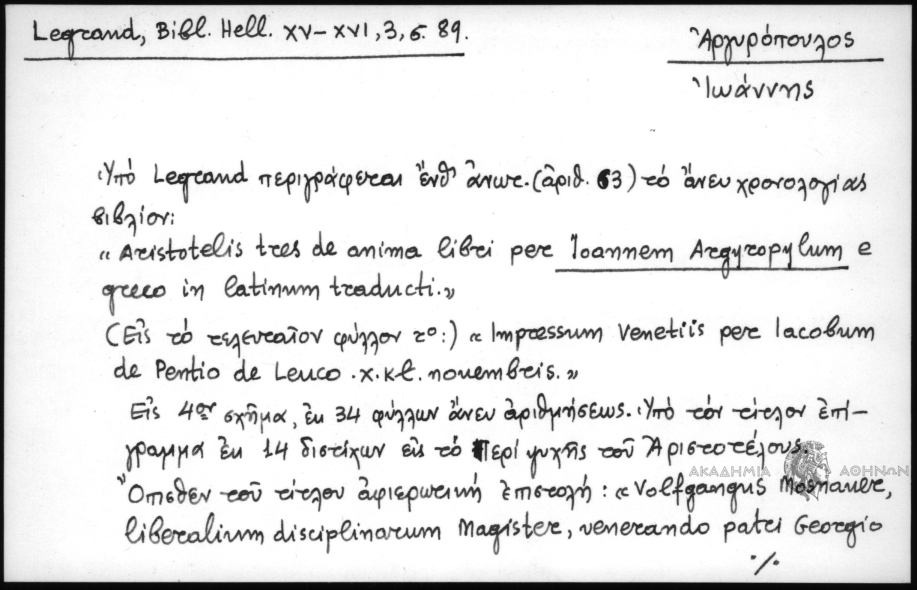 Legrand, Bibl. Hell. XV–XVI, 3, σ. 89.
Ἀργυρόπουλος
Ἰωάννης
Ὑπό Legrand περιγράφεται ἔνθ' ἀνωτ. (ἀριθ. 63) τό ἄνευ χρονολογίας
βιβλίον:
« Aristotelis tres de anima libri per Ioannem Argyropylum e
greco in latinum traducti.»
(Εἰς τό τελευταῖον φύλλον το:) « Impressum Venetiis per Iacobum
de Pentio de Leuco . x. kl. novembris. »
Εἰς 4ον σχῆμα, ἐκ 34 φύλλων ἄνευ ἀριθμήσεως. Ὑπό τόν τίτλον ἐπί-
γραμμα ἐκ 14 διστίχων εἰς τό Περί ψυχῆς τοῦ Ἀριστοτέλους.
Ὄπισθεν τοῦ τίτλου ἀφιερωτική ἐπιστολή : « Volfgangus Mosnauer,
liberalium disciplinarum Magister, venerando patri Georgio
./.
ΑΚΑΔΗΜΙΑ ΑΘΗΝΩΝ